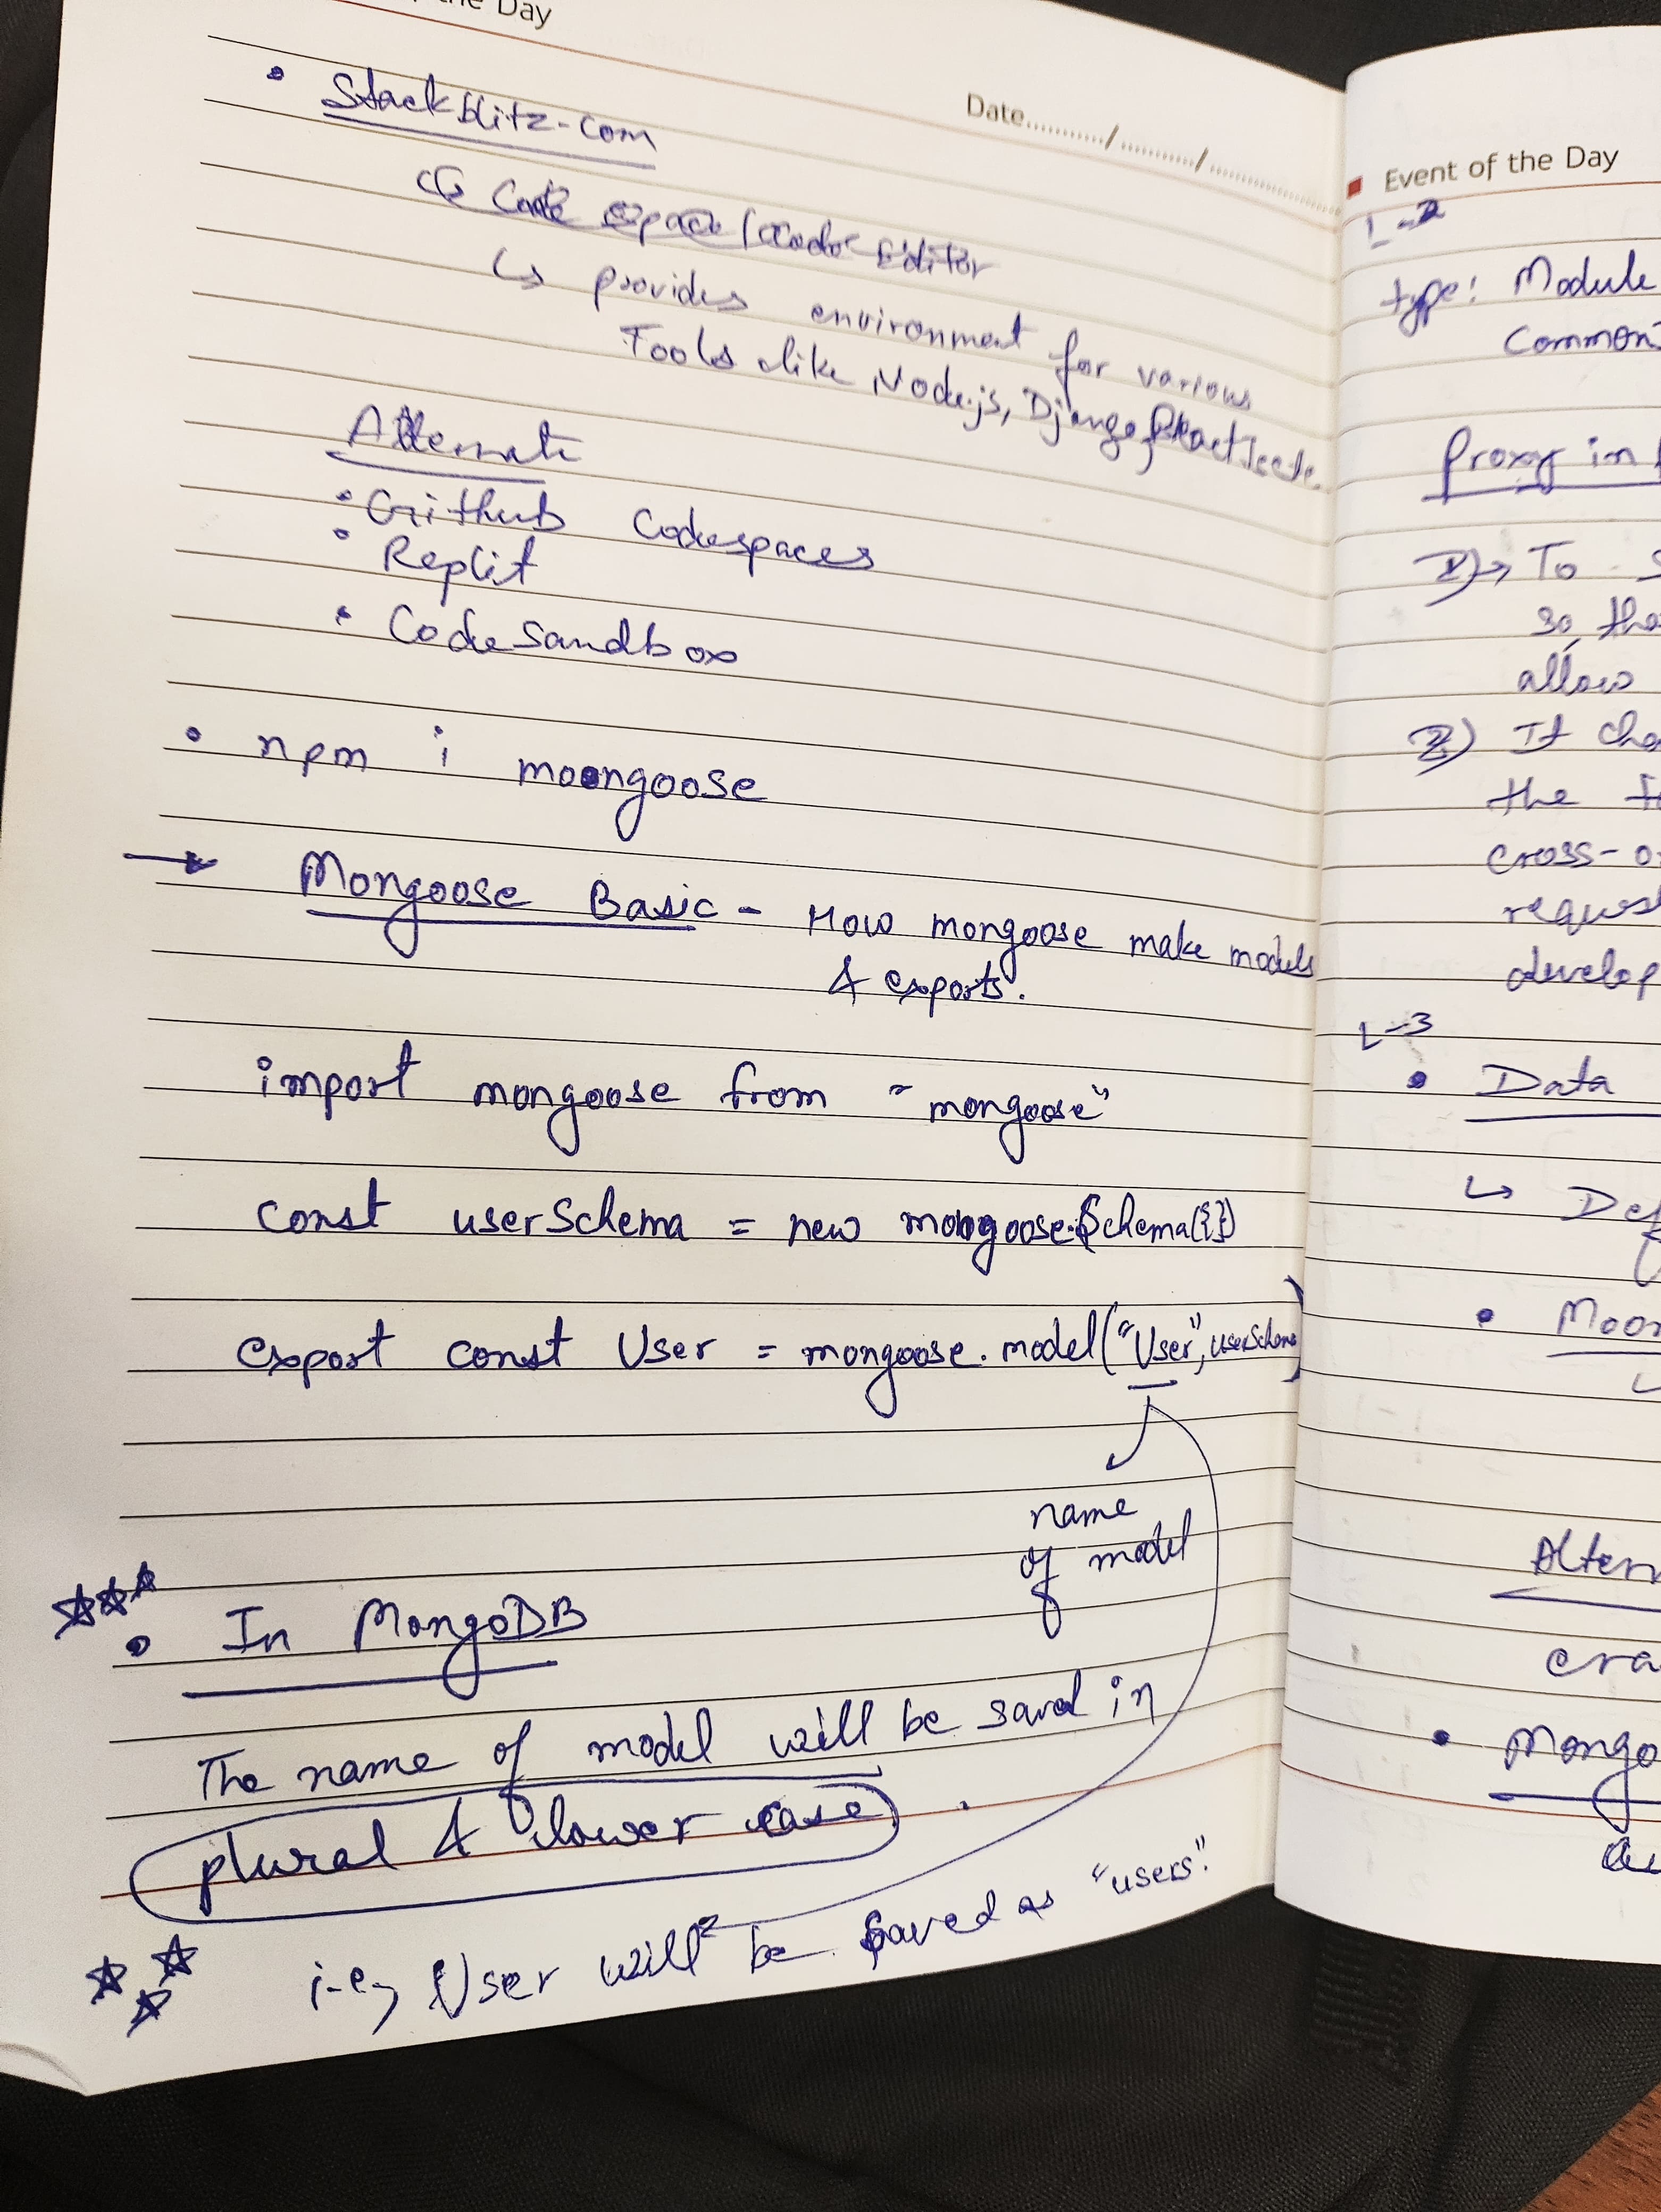 the Day
Date.........../.........../...........
• Stackblitz-com
Code space / Code Editor
↳ provides environment for various
Tools like Node.js, Django, etc.
Alternate
• Github Codespaces
• Replit
• CodeSandbox
• npm i moongoose
→ Mongoose Basic - How mongoose make models
& exports.
import mongoose from "mongoose"
const userSchema = new mongoose.Schema({})
export const User = mongoose.model("User", userSchema)
name
of model
• In MongoDB
The name of model will be saved in
plural & lower case.
i.e, User will be saved as "users".
Event of the Day
L-2
type: Module
Common
Proxy in
1)→ To
so, tha
allow
2) It cha
the
cross-o
request
develop
L-3
• Data
↳ Def
• Moon
Altern
cra
• Mongo